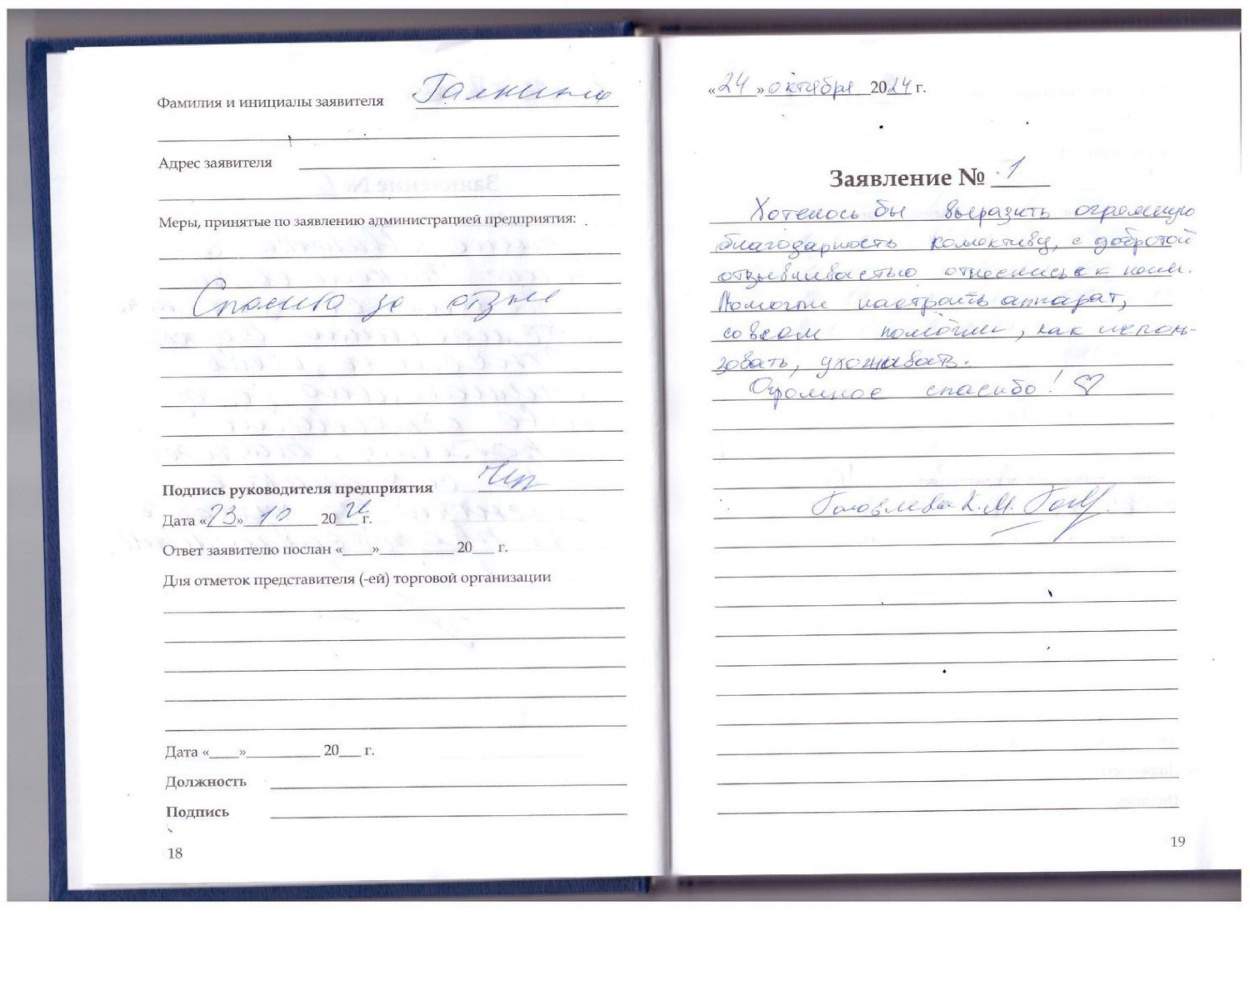 Фамилия и инициалы заявителя Галкина
Адрес заявителя
Меры, принятые по заявлению администрацией предприятия:
Спасибо за отзыв
Подпись руководителя предприятия
Дата «23» 10 2024 г.
Ответ заявителю послан «___»__________ 20___ г.
Для отметок представителя (-ей) торговой организации
Дата «____»__________ 20___ г.
Должность
Подпись
18
«24» октября 2024 г.
Заявление № 1
Хотелось бы выразить огромную
благодарность коллективу, с добротой
отзывчивостью отнеслись к нам.
Помогли настроить аппарат,
советом помогли, как исполь-
зовать, ухаживать.
Огромное спасибо! ♡
Головлева К.М.
19